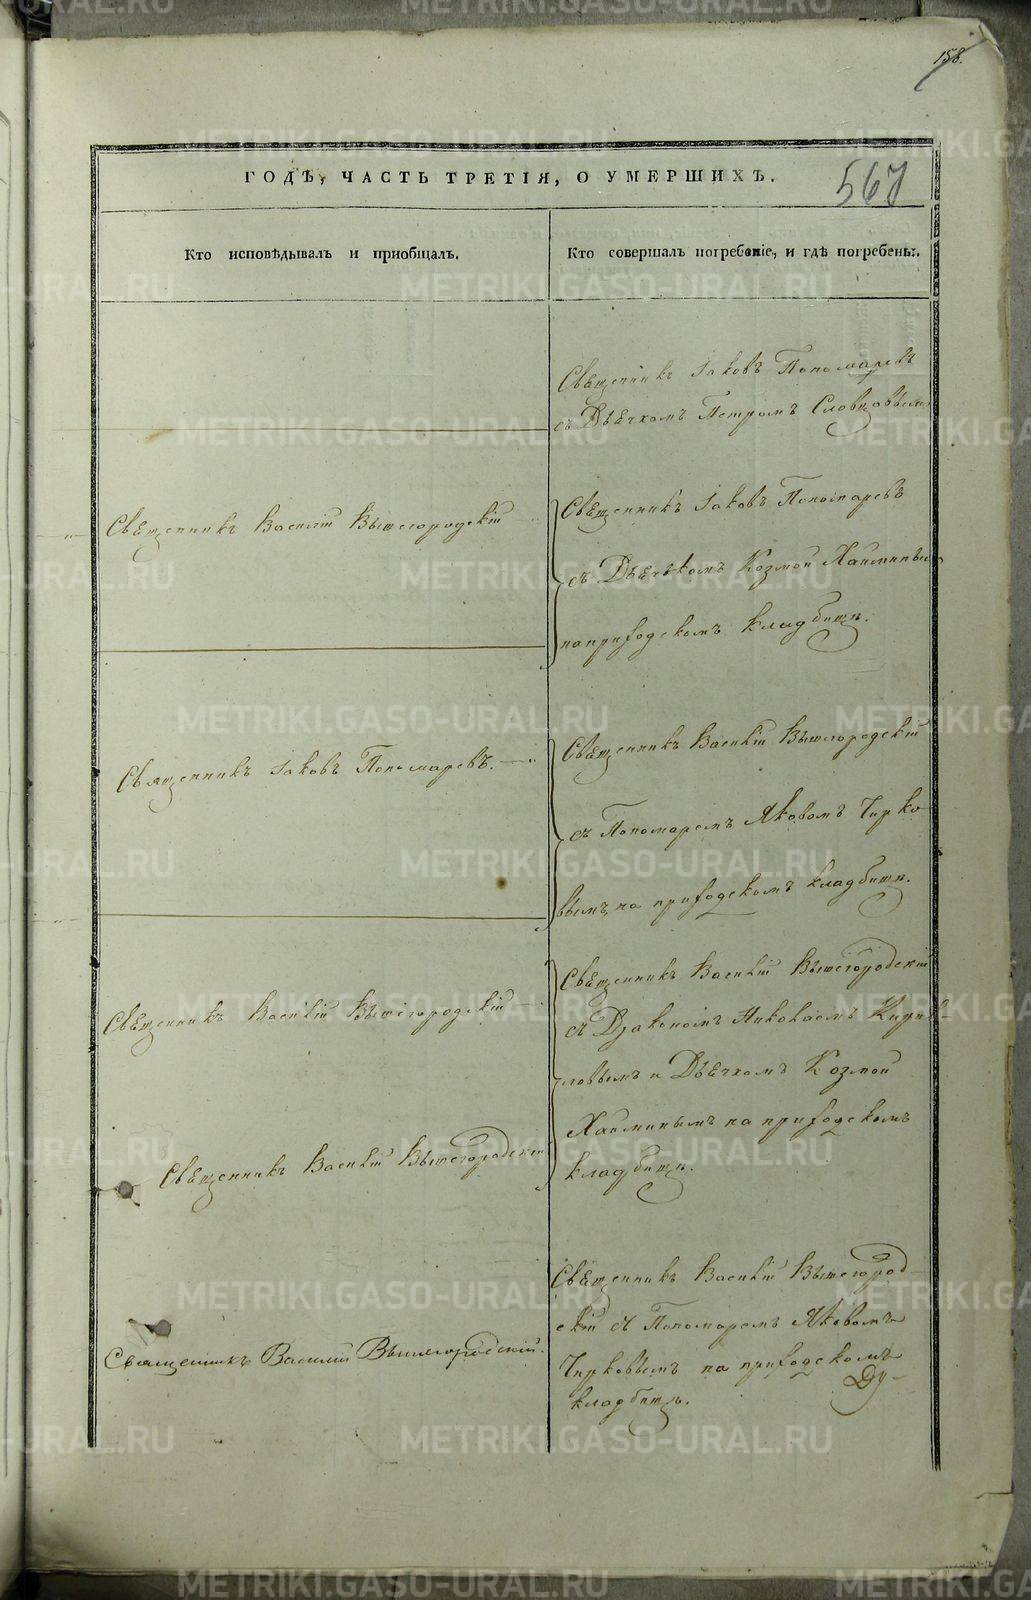 158.
ГОДѢ, ЧАСТЬ ТРЕТІЯ, О УМЕРШИХЪ.
567
Кто исповѣдывалъ и пріобщалъ.
Кто совершалъ погребеніе, и гдѣ погребены.
Священникъ Іаковъ Пономаревъ
съ Дьячкомъ Петромъ Словцовымъ
Священникъ Василій Вышегородскій
Священникъ Іаковъ Пономаревъ
съ Дьячькомъ Козмой Хайминымъ
на приходскомъ кладбищѣ.
Священникъ Іаковъ Пономаревъ.
Священникъ Василій Вышегородскій
съ Пономаремъ Яковомъ Чирко
вымъ на приходскомъ кладбищѣ.
Священникъ Василій Вышегородскій
Священникъ Василій Вышегородскій
съ Діакономъ Николаемъ Кири
ловымъ и Дьячкомъ Козмой
Хайминымъ на приходскомъ
кладбищѣ.
Священникъ Василій Вышегородскій
Священникъ Василій Вышегород
скій съ Пономаремъ Яковомъ
Чирковымъ на приходскомъ
кладбищѣ.
Священникъ Василий Вышегородский.
Ду-
METRIKI.GASO-URAL.RU